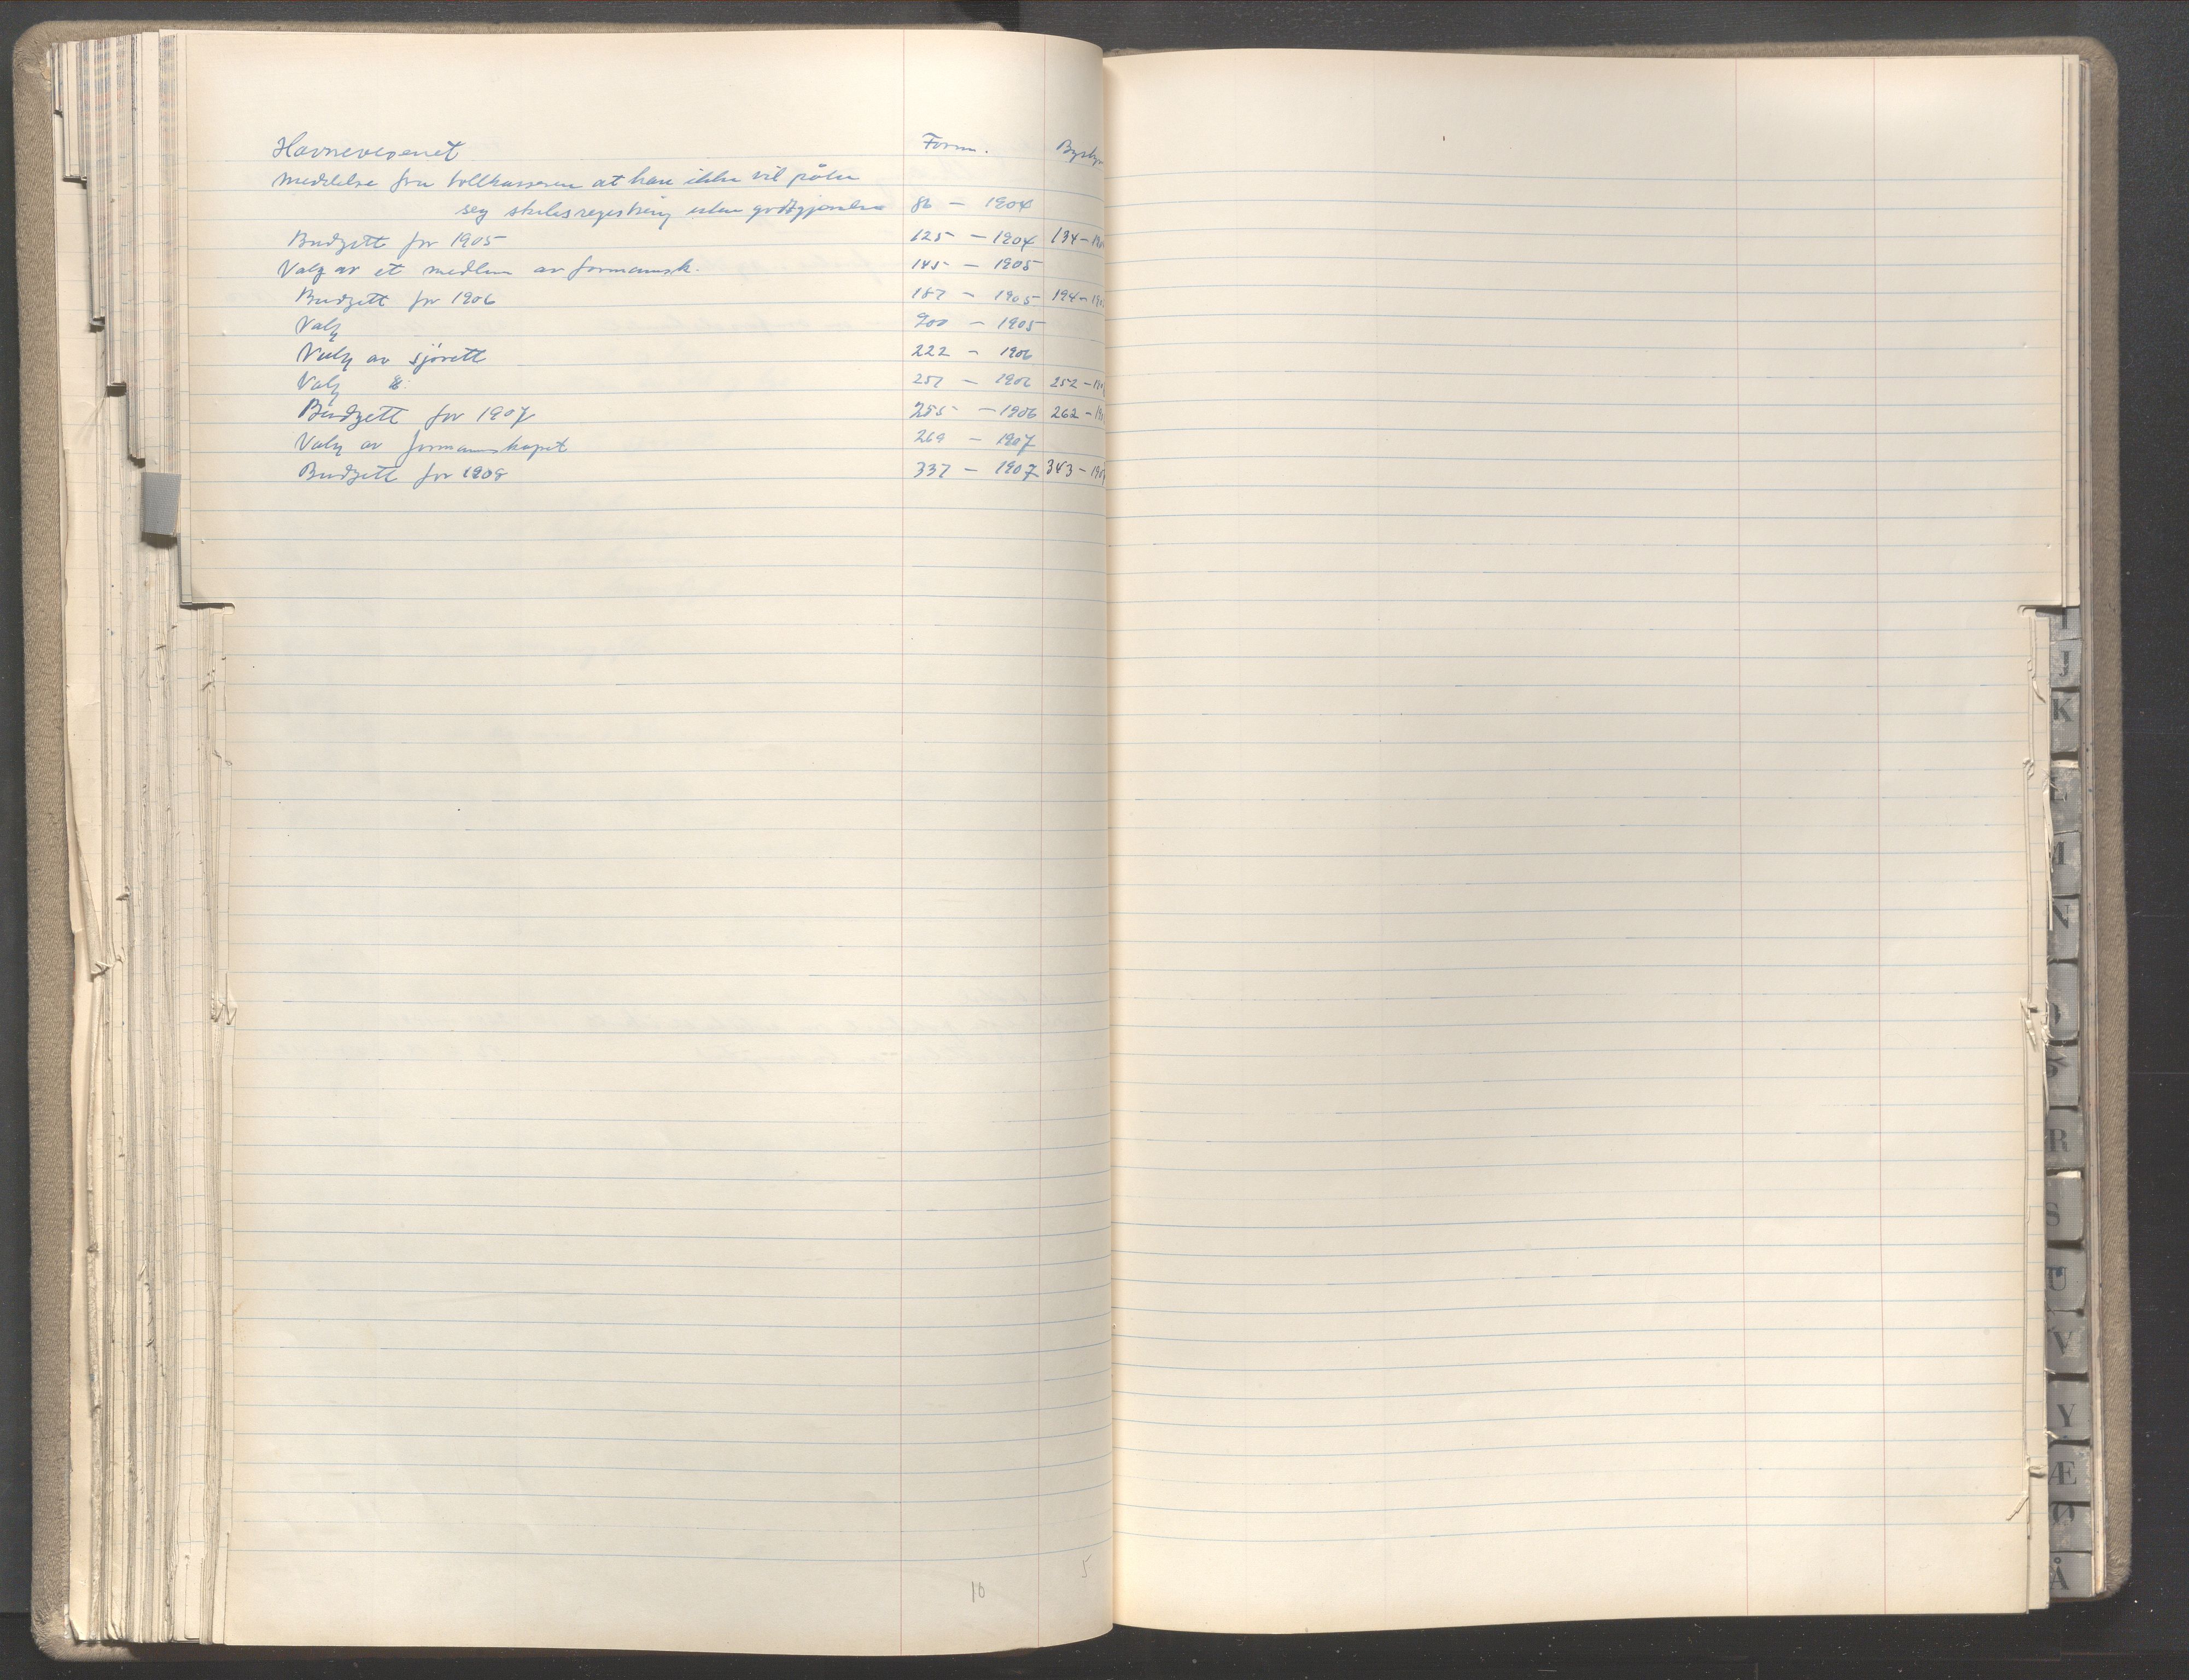 Havnevesenet Form. Bysty
Meddelelse fra tollkassereren at han ikke vil påta
seg skibsregistrering uten godtgjørelse 86 – 1904
Budgett for 1905 125 – 1904 134 – 190
Valg av et medlem av formannsk. 145 – 1905
Budgett for 1906 187 – 1905 194 – 190
Valg 200 – 1905
Valg av sjørett 222 – 1906
Valg 251 – 1906 252 – 190
Budgett for 1907 255 – 1906 262 – 190
Valg av formannskapet 269 – 1907
Budgett for 1908 337 – 1907 343 – 190
10 5
I
J
K
N
R
S
U
V
Y
Æ
Ø
Å